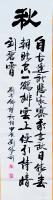 秋
自古逢秋悲寂寥我言秋日勝春
朝晴空一鶴排雲上便引詩情
到碧霄